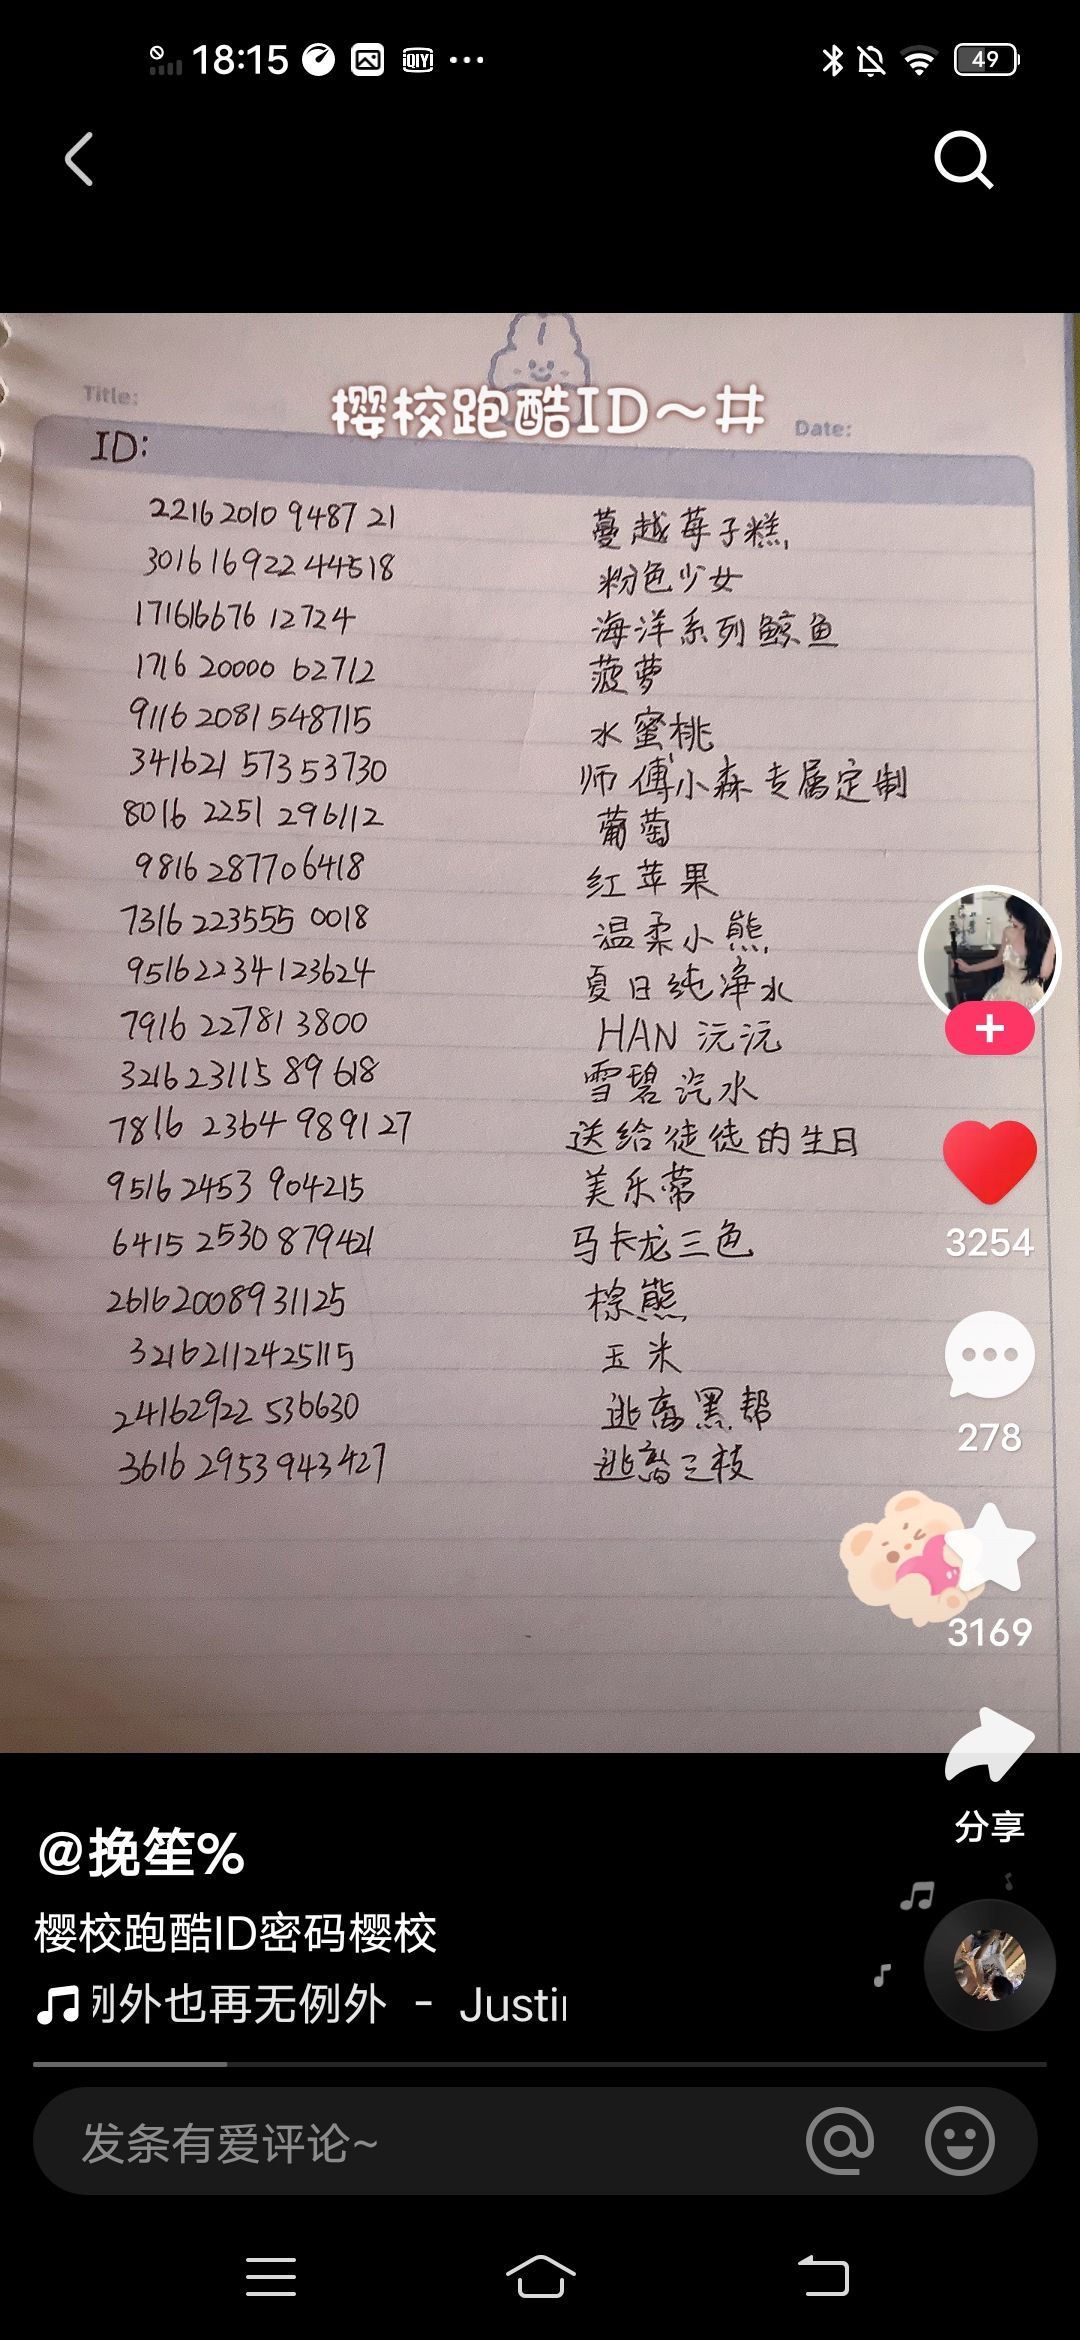 18:15
iQIY
49
Title:
樱校跑酷ID～#
Date:
ID:
22162010 9487 21 蔓越莓子糕
3016 16922 44518 粉色少女
171616676 12724 海洋系列鲸鱼
1716 20000 62712 菠萝
9116 2081548715 水蜜桃
341621 57353730 师傅小森专属定制
8016 2251 296112 葡萄
9816 287706418 红苹果
7316 223555 0018 温柔小熊
95162234123624 夏日纯净水
7916 227813800 HAN 沅沅
321623115 89 618 雪碧汽水
7816 2364 989127 送给徒徒的生日
95162453 904215 美乐蒂
6415 2530 879421 马卡龙三色
26162008931125 棕熊
32162112425115 玉米
24162922 536630 逃离黑帮
3616 2953943427 逃离三枝
3254
278
3169
分享
@挽笙%
樱校跑酷ID密码樱校
列外也再无例外 - Justin
发条有爱评论~